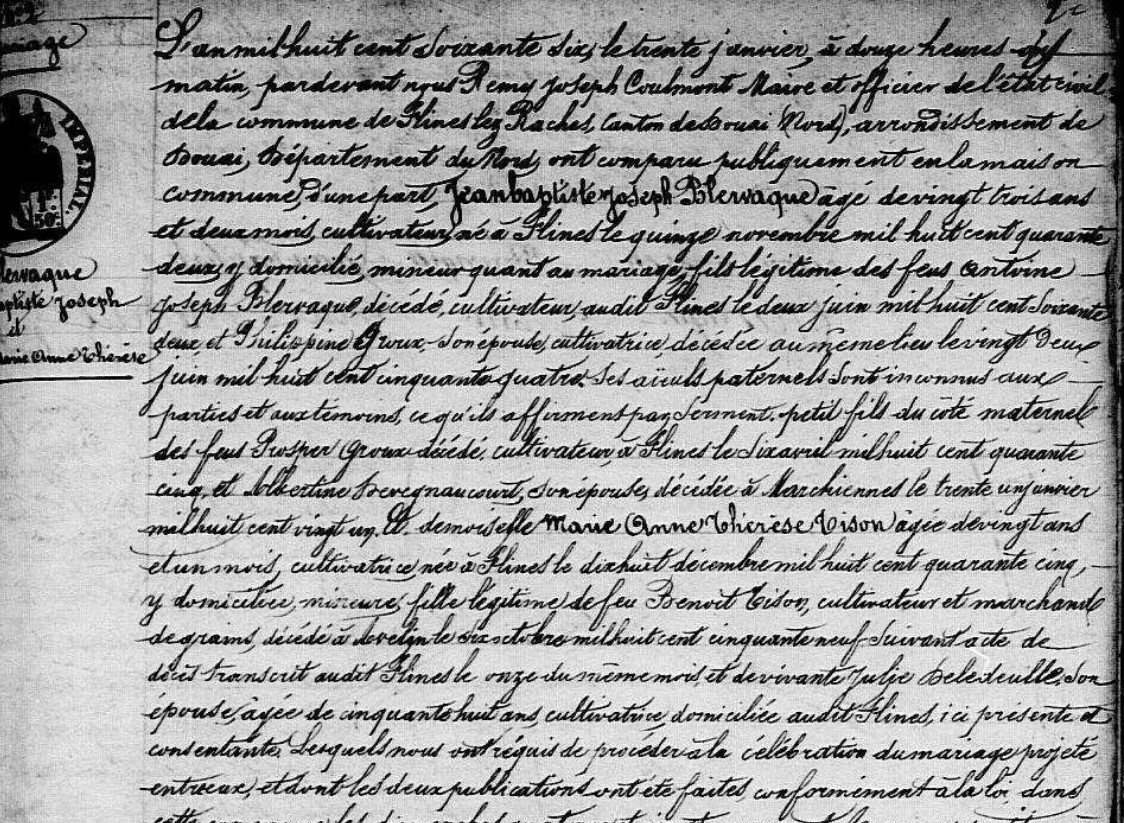 mariage
IMPERIAL.
50c
Blervaque
Baptiste Joseph
et
Marie Anne Thérèse
L'an mil huit cent soixante six, le trente janvier, à douze heures du
matin, pardevant nous Remy Joseph Coulmont Maire et officier de l'état civil
de la commune de Flines lez Raches, Canton de Douai (Nord), arrondissement de
Douai, Département du Nord, ont comparu publiquement en la maison
commune, d'une part, Jean baptiste Joseph Blervaque âgé de vingt trois ans
et deux mois, cultivateur, né à Flines le quinze novembre mil huit cent quarante
deux, y domicilié, mineur quant au mariage, fils légitime des feus Antoine
Joseph Blervaque, décédé, cultivateur, audit Flines le deux juin mil huit cent soixante
deux, et Philippine Groux, son épouse, cultivatrice, décédée au même lieu le vingt deux
juin mil huit cent cinquante quatre. Ses aïeuls paternels sont inconnus aux
parties et aux témoins, ce qu'ils affirment par serment. petit fils du côté maternel
des feus Prosper Groux décédé, cultivateur, à Flines le six avril mil huit cent quarante
cinq, et Albertine Deregnaucourt, son épouse, décédée à Marchiennes le trente un janvier
mil huit cent vingt un. Et demoiselle Marie Anne Thérèse Tison âgée de vingt ans
et un mois, cultivatrice, née à Flines le dix huit décembre mil huit cent quarante cinq,
y domiciliée, mineure, fille légitime de feu Benoit Tison, cultivateur et marchand
de grains, décédé à le six octobre mil huit cent cinquante neuf suivant acte de
décès transcrit audit Flines le onze du même mois, et de vivante Julie Deledeuille, son
épouse, âgée de cinquante huit ans, cultivatrice, domiciliée audit Flines, ici présente et
consentante. Lesquels nous ont réquis de procéder à la célébration du mariage projeté
entr'eux, et dont les deux publications ont été faites, conformément à la loi, dans
cette commune les